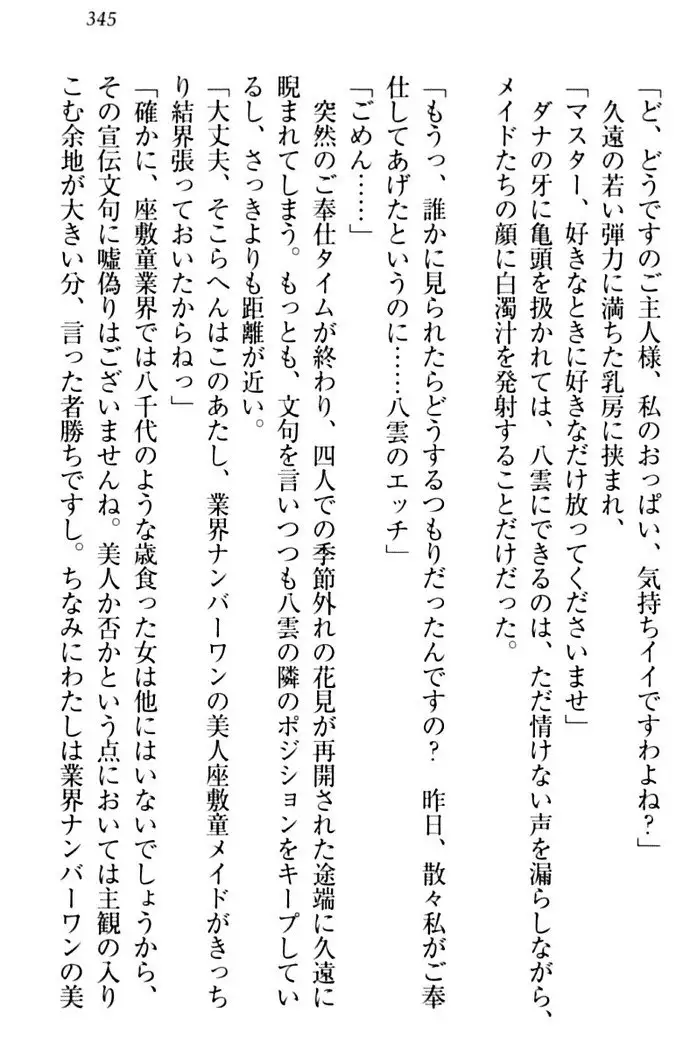 345
「ど、どうですのご主人様、私のおっぱい、気持ちイイですわよね?」
久遠の若い弾力に満ちた乳房に挟まれ、
「マスター、好きなときに好きなだけ放ってくださいませ」
ダナの牙に亀頭を扱かれては、八雲にできるのは、ただ情けない声を漏らしながら、
メイドたちの顔に白濁汁を発射することだけだった。
「もうっ、誰かに見られたらどうするつもりだったんですの? 昨日、散々私がご奉
仕してあげたというのに……八雲のエッチ」
「ごめん……」
突然のご奉仕タイムが終わり、四人での季節外れの花見が再開された途端に久遠に
睨まれてしまう。もっとも、文句を言いつつも八雲の隣のポジションをキープしてい
るし、さっきよりも距離が近い。
「大丈夫、そこらへんはこのあたし、業界ナンバーワンの美人座敷童メイドがきっち
り結界張っておいたからねっ」
「確かに、座敷童業界では八千代のような歳食った女は他にはいないでしょうから、
その宣伝文句に嘘偽りはございませんね。美人か否かという点においては主観の入り
こむ余地が大きい分、言った者勝ちですし。ちなみにわたしは業界ナンバーワンの美